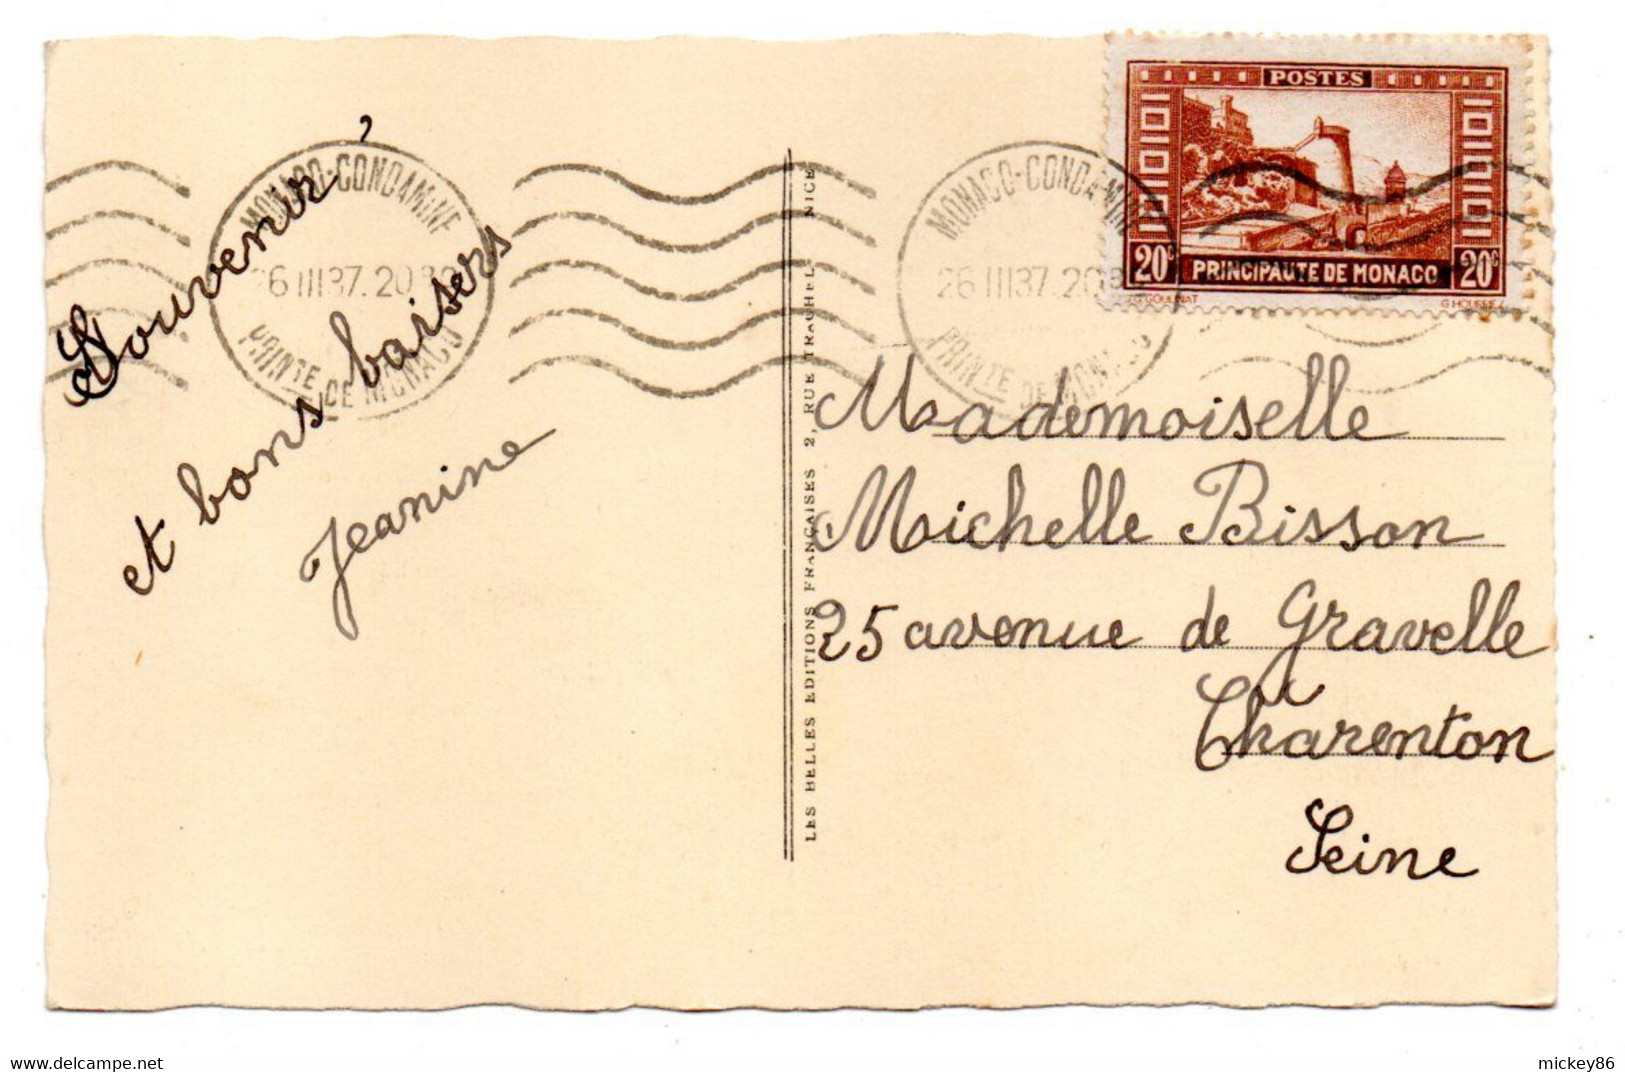 Souvenir
et bons baisers
Jeanine
MONACO-CONDAMINE
26 III 37. 20
PRINTE DE MONACO
MONACO-CONDAMINE
26 III 37. 20
PRINTE DE MONACO
POSTES
20c PRINCIPAUTE DE MONACO 20c
LES BELLES EDITIONS FRANÇAISES 2, RUE TRACHEL NICE
Mademoiselle
Michelle Bisson
25 avenue de Gravelle
Charenton
Seine
mickey86